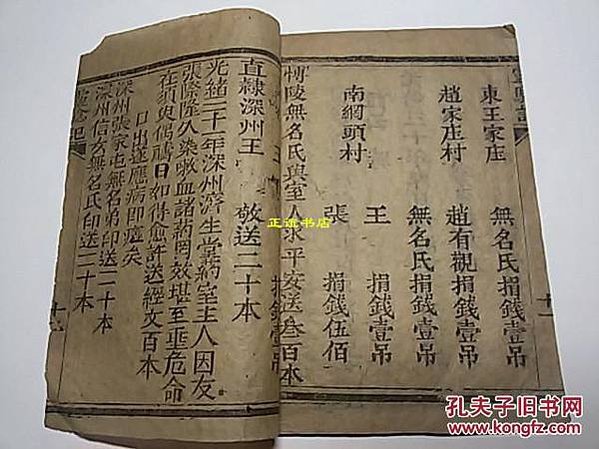 東王家庄 無名氏捐錢壹吊
趙家庄村 趙有觀捐錢壹吊
無名氏捐錢壹吊
南網頭村 王 捐錢壹吊
張 捐錢伍佰
博陵無名氏與室人求平安送叁百本
王 捐錢壹吊
直隸深州王 敬送二十本
光緒二十一年深州濟生堂葯室主人因友
張隆隆久染嗽血諸葯罔效堪至垂危命
在須臾偶禱曰如得愈許送經文百本
口出逐應病即痊矣
深州張家屯無名弟印送二十本
深州信女無名氏印送二十本
正谊书店
孔夫子旧书网